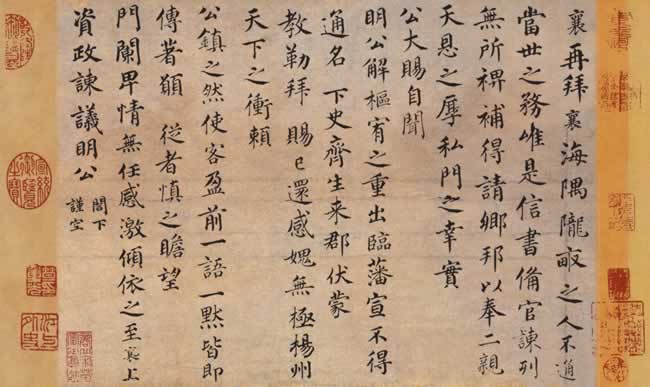 襄再拜襄海隅隴畝之人不通
當世之務唯是信書備官諫列
無所裨補得請鄉邦以奉二親
天恩之厚私門之幸實
公大賜自聞
明公解樞宥之重出臨藩宣不得
通名 下史齊生来郡伏蒙
教勒拜 賜已還感媿無極楊州
天下之衝賴
公鎮之然使客盈前一語一默皆即
傳者願 從者慎之瞻望
門闌卑情無任感激傾依之至襄上
資政諫議明公 閤下
謹空